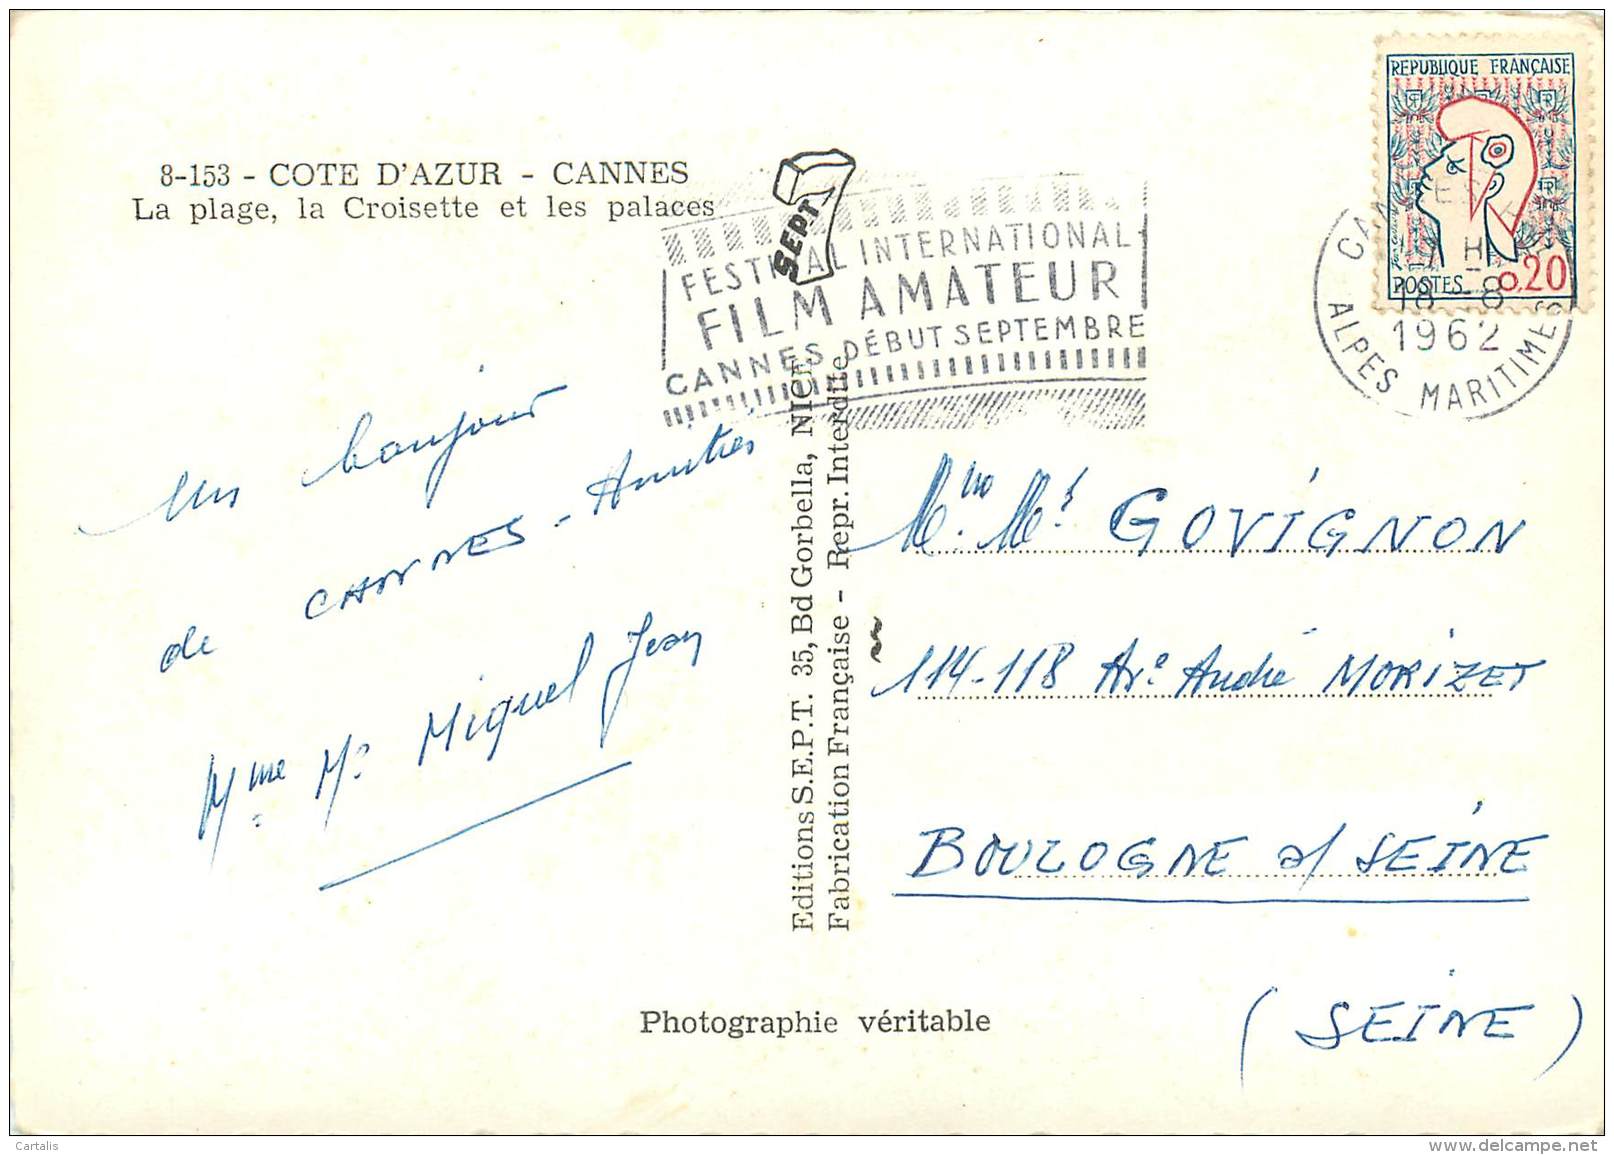 8-153 - COTE D'AZUR - CANNES
La plage, la Croisette et les palaces
SEPT
FESTIVAL INTERNATIONAL
FILM AMATEUR
CANNES DÉBUT SEPTEMBRE
REPUBLIQUE FRANÇAISE
POSTES 0,20
18-8
1962
ALPES MARITIMES
Un bonjour
de CANNES - Amitiés
Mme Mr Miguel Jean
Editions S.E.P.T. 35, Bd Gorbella, NICE
Fabrication Française - Repr. Interdite
GOVIGNON
114-118 Ave André MORIZET
BOULOGNE s/ SEINE
(SEINE)
Photographie véritable
Cartalis
www.delcampe.net